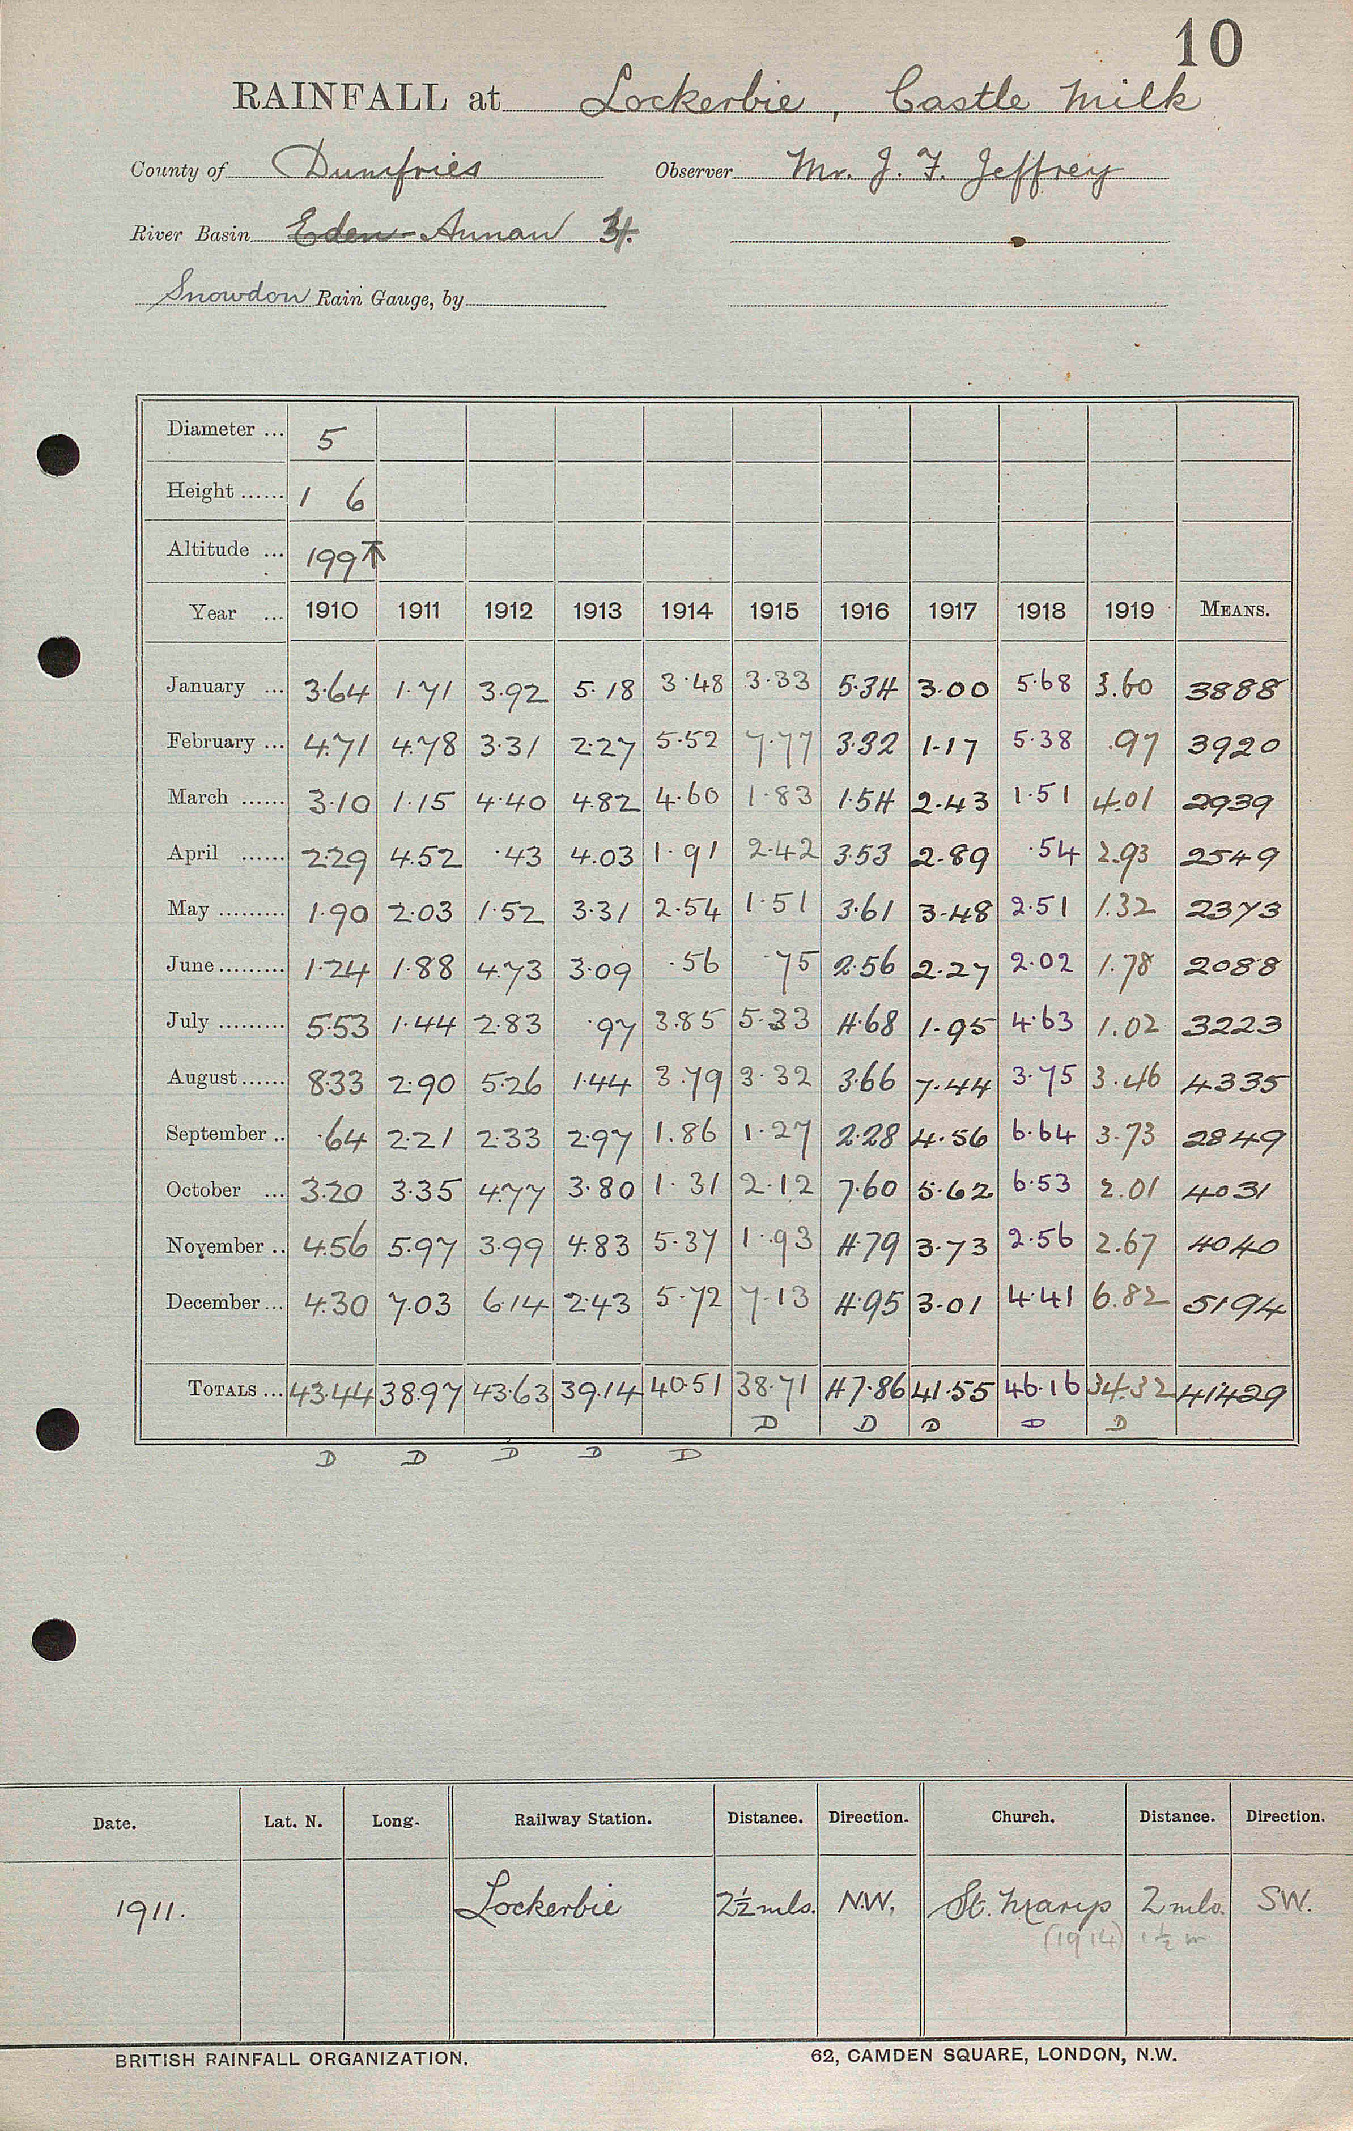 10
RAINFALL at Lockerbie, Castle Milk
County of Dumfries Observer Mr. J. F. Jeffrey
River Basin Eden-Annan
Snowdon Rain Gauge, by
Diameter ... 5
Height ...... 1 6
Altitude ... 199
Year ... 1910 1911 1912 1913 1914 1915 1916 1917 1918 1919 MEANS.
January ... 3.64 1.71 3.92 5.18 3.48 3.33 5.34 3.00 5.68 3.60 3888
February ... 4.71 4.78 3.31 2.27 5.52 7.77 3.32 1.17 5.38 .97 3920
March ...... 3.10 1.15 4.40 4.82 4.60 1.83 1.54 2.43 1.51 4.01 2939
April ...... 2.29 4.52 .43 4.03 1.91 2.42 3.53 2.89 .54 2.93 2549
May ......... 1.90 2.03 1.52 3.31 2.54 1.51 3.61 3.48 2.51 1.32 2373
June ......... 1.24 1.88 4.73 3.09 .56 .75 2.56 2.27 2.02 1.78 2088
July ......... 5.53 1.44 2.83 .97 3.85 5.33 4.68 1.95 4.63 1.02 3223
August ...... 8.33 2.90 5.26 1.44 3.79 3.32 3.66 7.44 3.75 3.46 4335
September .. .64 2.21 2.33 2.97 1.86 1.27 2.28 4.56 6.64 3.73 2849
October ... 3.20 3.35 4.77 3.80 1.31 2.12 7.60 5.62 6.53 2.01 4031
November .. 4.56 5.97 3.99 4.83 5.37 1.93 4.79 3.73 2.56 2.67 4040
December ... 4.30 7.03 6.14 2.43 5.72 7.13 4.95 3.01 4.41 6.82 5194
TOTALS ... 43.44 38.97 43.63 39.14 40.51 38.71 47.86 41.55 46.16 34.32 41429
D D D D D
D D D D D
Date. Lat. N. Long. Railway Station. Distance. Direction. Church. Distance. Direction.
1911. Lockerbie 2½ mls. N.W. St. Marys 2 mls. SW.
(1914) 1½ m
BRITISH RAINFALL ORGANIZATION. 62, CAMDEN SQUARE, LONDON, N.W.